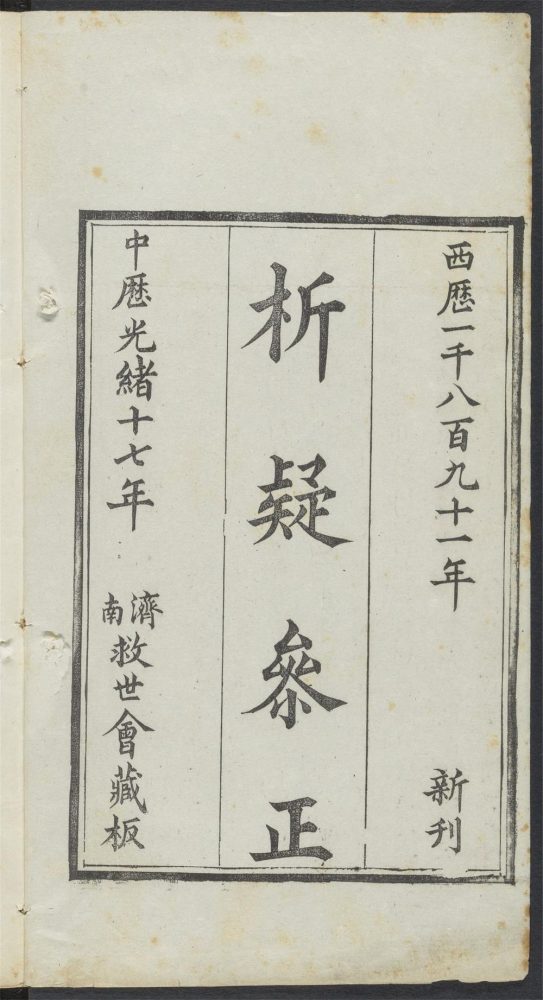 西歷一千八百九十一年 新刊
析疑叅正
中歷光緒十七年 濟南救世會藏板